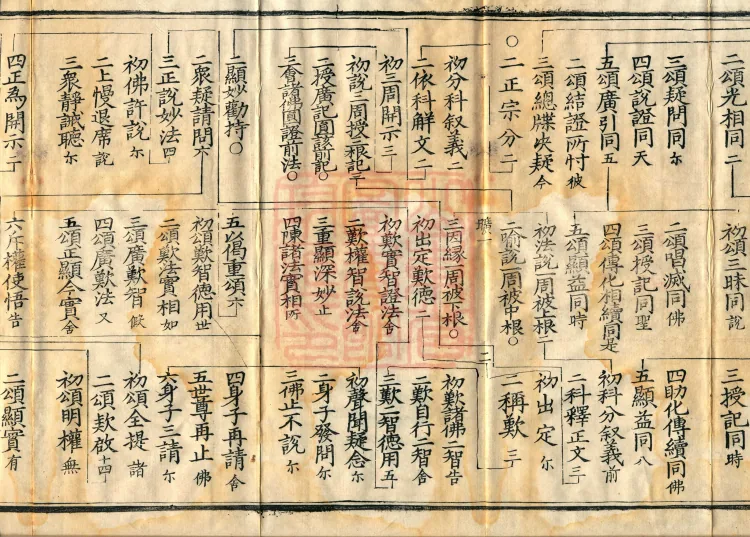 二頌光相同二
三頌疑問同尔
四頌說證同天
五頌廣引同五
二頌結證所忖被
三頌總牒決疑今
○二正宗分二
初分科叙義二
二依科解文二
初三周開示三
初說三周授三根記三
二授廣記圓該前記○
三會諸佛圓證前法○
二顯妙勸持○
二衆疑請問下
三正說妙法四
初佛許說尔
二上慢退席說
三衆靜誠聽尔
四正為開示二
初頌三昧同說
二頌唱滅同佛
三頌授記同聖
四頌傳化相續同是
五頌顯益同時
初法說一周被上根二
二喻說一周被中根○
曠一
三因緣一周被下根○
初出定歎德二
初歎實智證法舍
二歎權智說法舍
三重顯深妙止
四陳諸法實相所
五以偈重頌下
初頌歎智德用世
二頌歎法實相如
三頌廣歎智假
四頌廣歎法又
五頌正顯今實舍
六斥權使悟告
三授記同時
四助化傳續同佛
五顯益同八
初科分叙義前
二科釋正文三
初出定尔
二稱歎三
二
初歎諸佛二智告
二歎自行二智舍
三歎二智德用五
初聲聞疑念尔
二身子發問尔
三佛止不說尔
四身子再請舍
五世尊再止佛
六身子三請尔
初頌全提諸
二頌欵啟十四
初頌明權無
二頌顯實有